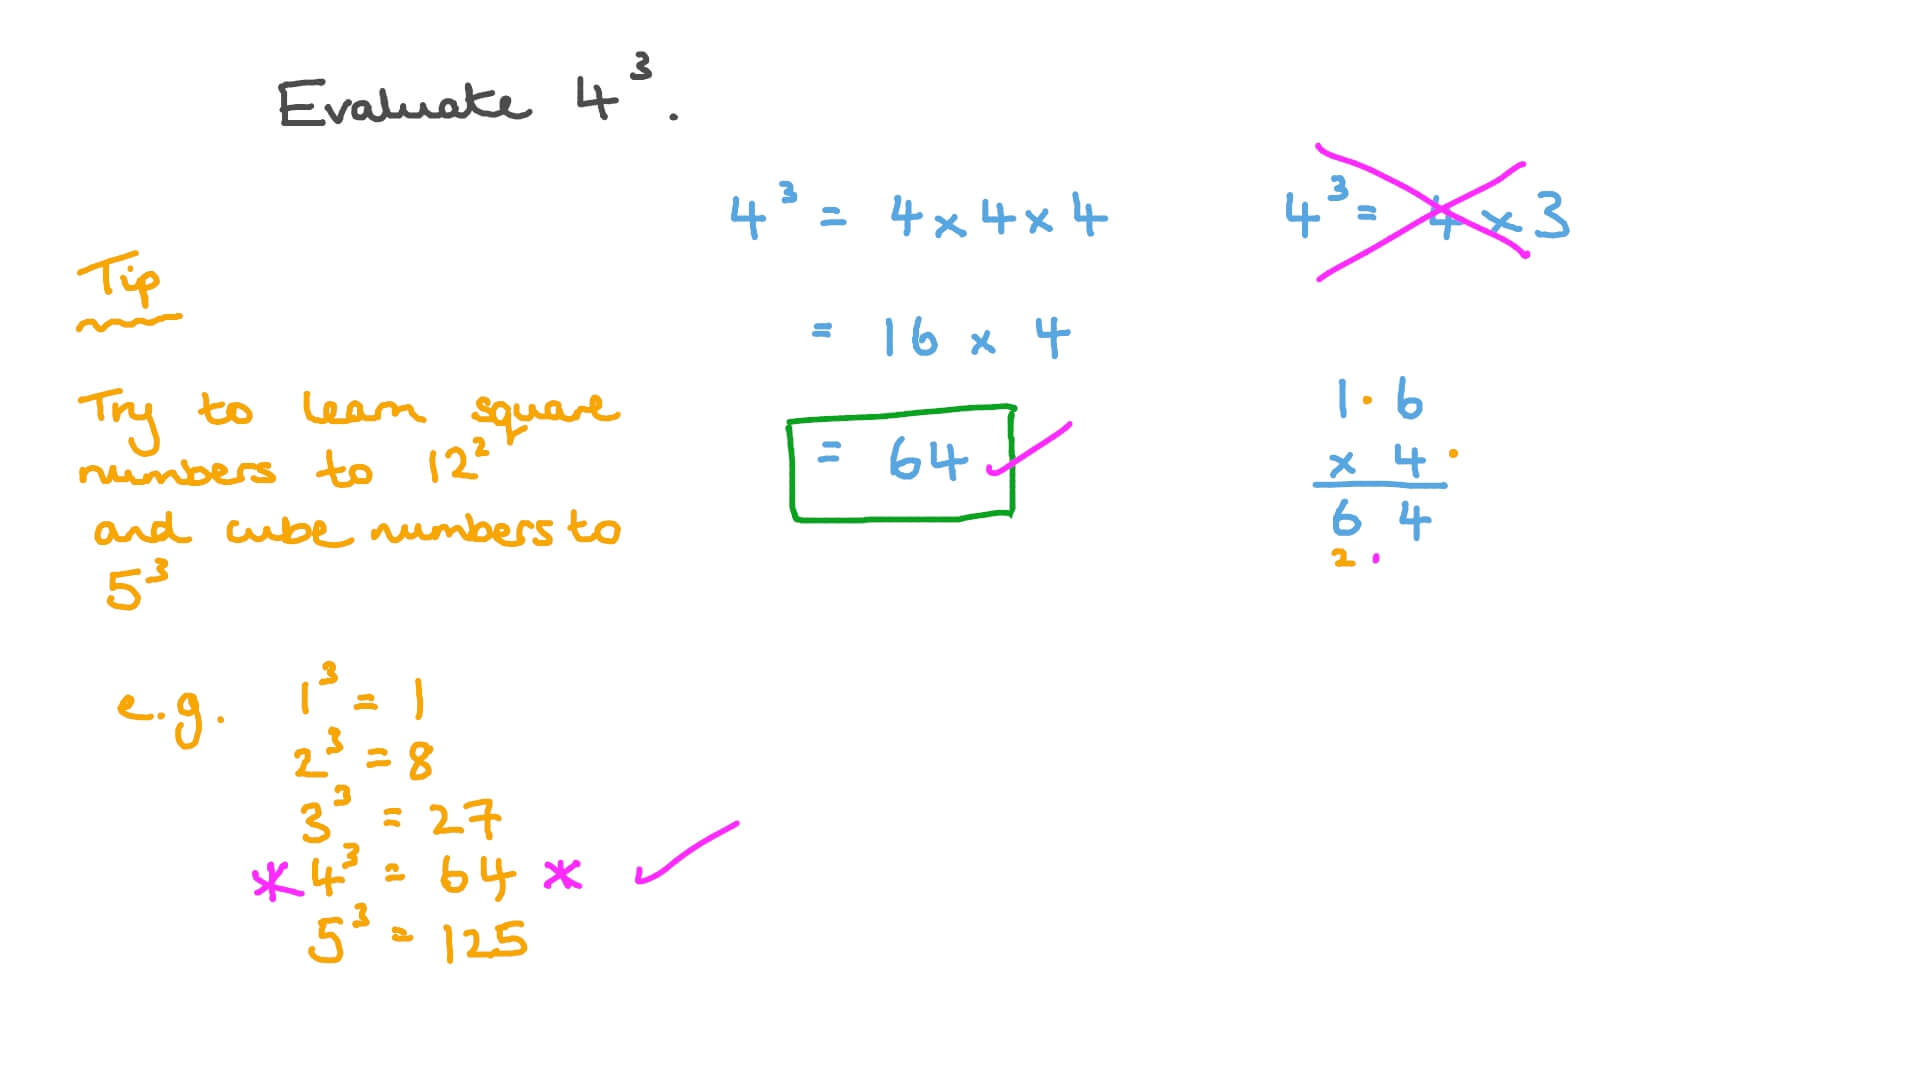 Evaluate 4³.
4³ = 4 x 4 x 4
= 16 x 4
= 64
4³ = 4 x 3
1 6
x 4
6 4
2
Tip
Try to learn square
numbers to 12²
and cube numbers to
5³
e.g. 1³ = 1
2³ = 8
3³ = 27
* 4³ = 64 *
5³ = 125